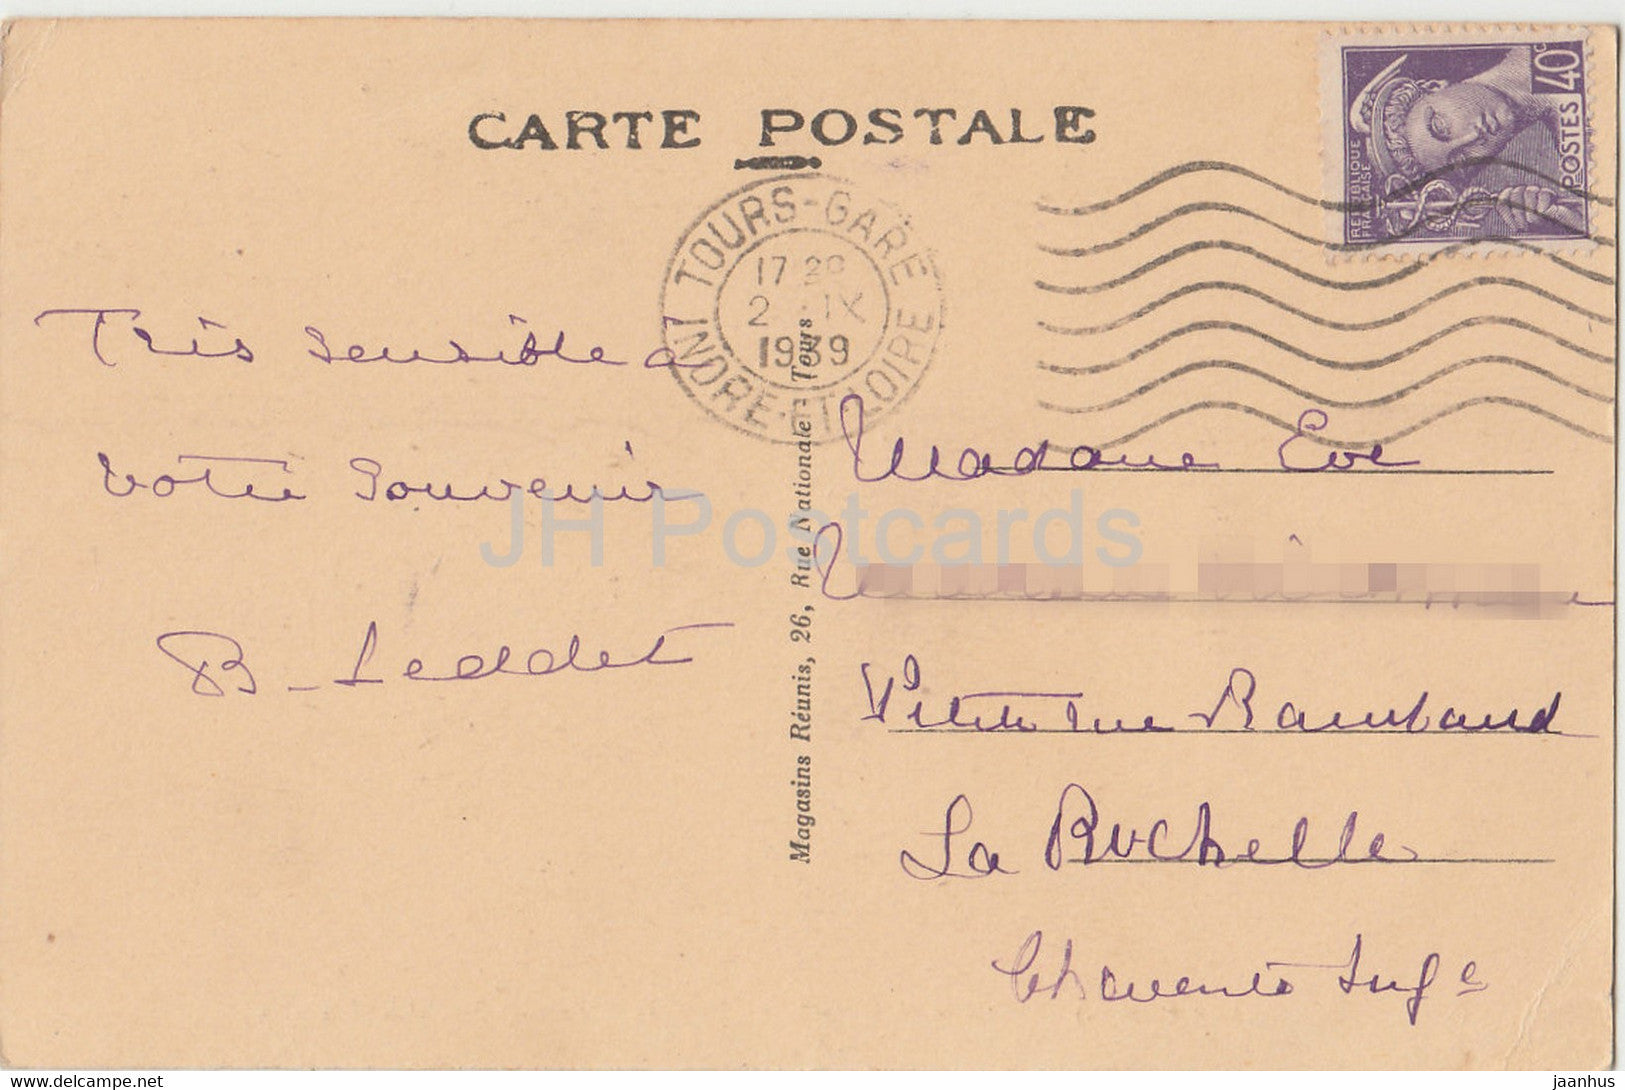 CARTE POSTALE
40c
POSTES
REPUBLIQUE
FRANCAISE
TOURS-GARE
17 30
2 IX
1939
INDRE-ET-LOIRE
Très sensible a
votre souvenir
B. Leddet
Magasins Réunis, 26, Rue Nationale - Tours
Madame Eve
rue Rambaud
La Rochelle
Charente Infre
JH Postcards
delcampe.net
jaanhus